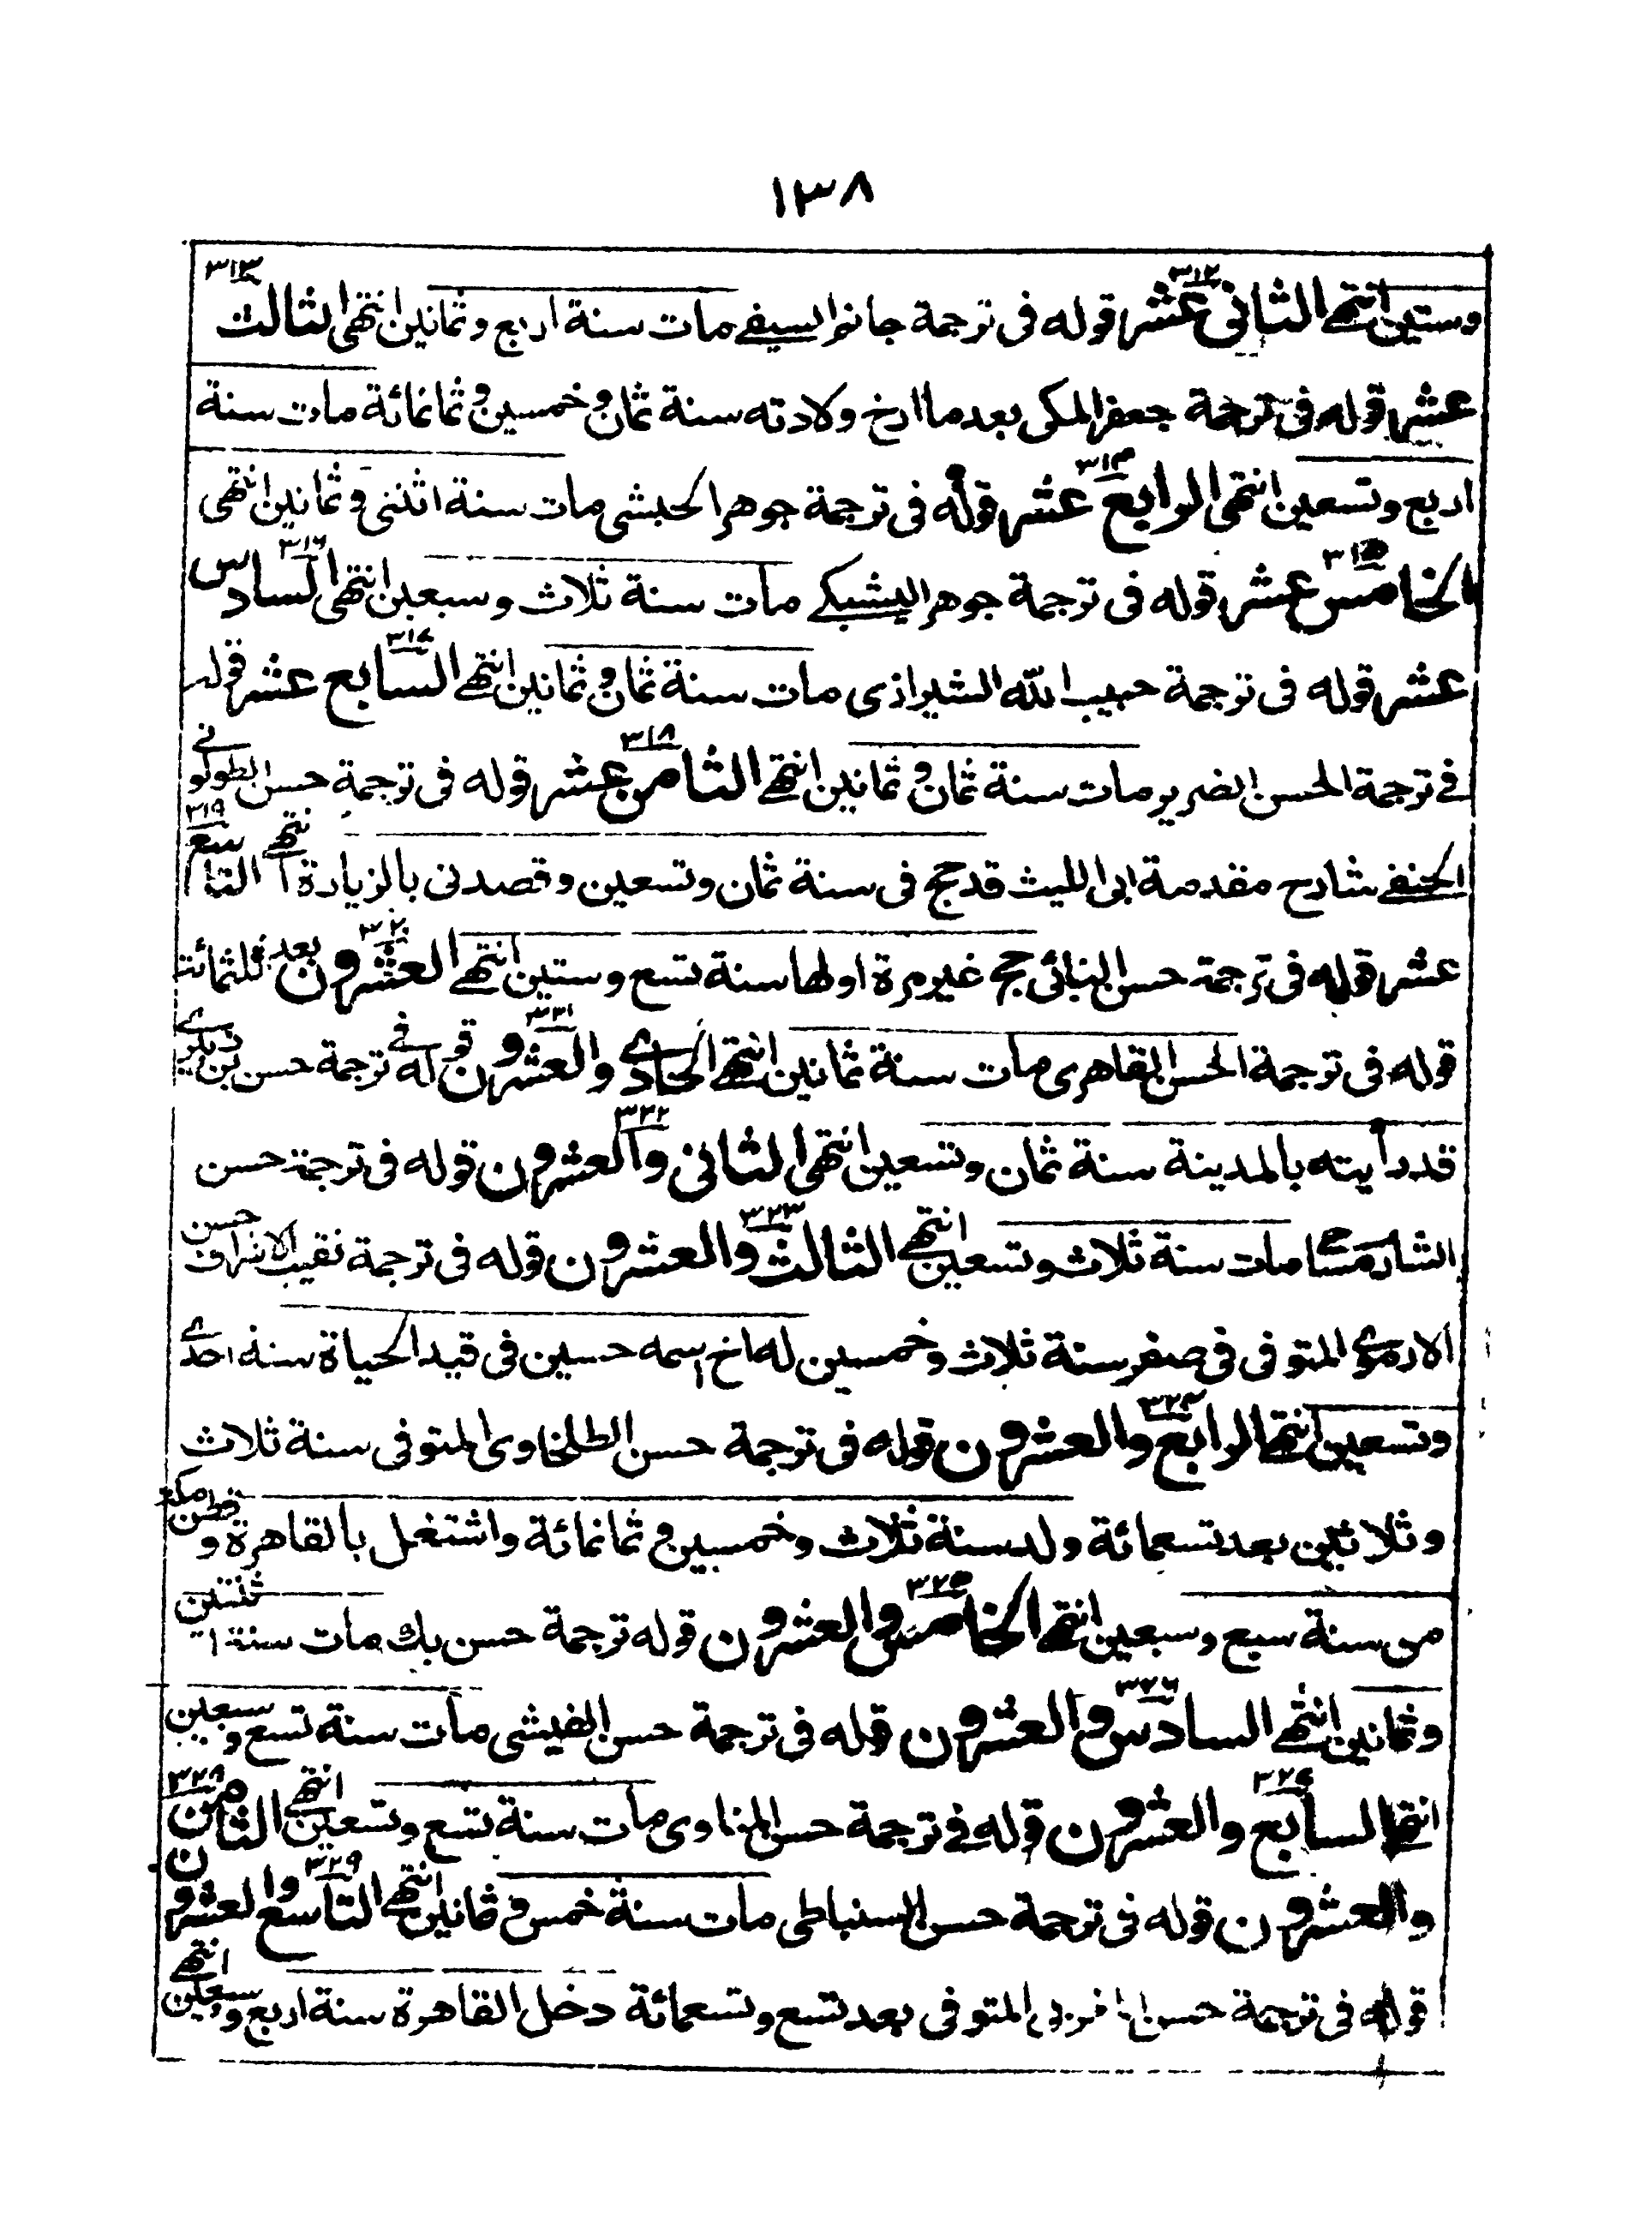 ١٣٨
٣١٢ ٣١٣
وستين انتهى الثاني عشر قوله في ترجمة جانم السيفي مات سنة اربع وثمانين انتهى الثالث
عشر قوله في ترجمة جعفر المكي بعد ما ارخ ولادته سنة ثمان وخمسين وثمانمائة مات سنة
٣١٤
اربع وتسعين انتهى الرابع عشر قوله في ترجمة جوهر الحبشي مات سنة اثنتي وثمانين انتهى
٣١٥ ٣١٦
الخامس عشر قوله في ترجمة جوهر اليشبكي مات سنة ثلاث وسبعين انتهى السادس
٣١٧
عشر قوله في ترجمة حبيب الله الشيرازي مات سنة ثمان وثمانين انتهى السابع عشر قوله
٣١٨
في ترجمة الحسن الضرير مات سنة ثمان وثمانين انتهى الثامن عشر قوله في ترجمة حسن الطولوني
٣١٩
الحنفي شارح مقدمة ابي الليث قد حج في سنة ثمان وتسعين وقصدني بالزيارة انتهى التاسع
٣٢٠
عشر قوله في ترجمة حسن البنائي حج غير مرة اولها سنة تسع وستين انتهى العشرون بعد ثلثمائة
٣٢١
قوله في ترجمة الحسن القاهري مات سنة ثمانين انتهى الحادي والعشرون قوله في ترجمة حسن بن
٣٢٢
قد رأيته بالمدينة سنة ثمان وتسعين انتهى الثاني والعشرون قوله في ترجمة حسن
٣٢٣
الشارمساحي مات سنة ثلاث وتسعين انتهى الثالث والعشرون قوله في ترجمة نقيب الاشراف حسن
الارموي المتوفى في صفر سنة ثلاث وخمسين له اخ اسمه حسين في قيد الحياة سنة احدى
٣٢٤
وتسعين انتهى الرابع والعشرون قوله في ترجمة حسن الطلخاوي المتوفى سنة ثلاث
وثلاثين بعد تسعمائة ولد سنة ثلاث وخمسين وثمانمائة واشتغل بالقاهرة وقطن مكة
٣٢٥
من سنة سبع وسبعين انتهى الخامس والعشرون قوله ترجمة حسن بك مات سنة اثنتين
٣٢٦
وثمانين انتهى السادس والعشرون قوله في ترجمة حسن الفيشي مات سنة تسع وسبعين
٣٢٧ ٣٢٨
انتهى السابع والعشرون قوله في ترجمة حسن المناوي مات سنة تسع وتسعين انتهى الثامن
٣٢٩
والعشرون قوله في ترجمة حسن السنباطي مات سنة خمس وثمانين انتهى التاسع والعشرون
قوله في ترجمة حسن المتوفى بعد تسع وتسعمائة دخل القاهرة سنة اربع وسبعين انتهى